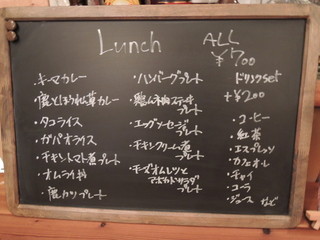 Lunch
ALL
¥700
・キーマカレー
・鹿とほうれん草カレー
・タコライス
・ガパオライス
・チキントマト煮プレート
・オムライス
・鹿カツプレート
・ハンバーグプレート
・鶏ムネ肉ステーキ
プレート
・エッグソーセージ
プレート
・チキンクリーム煮
プレート
・チーズオムレツと
アボカドサラダ
プレート
ドリンクset
+¥200
・コーヒー
・紅茶
・エスプレッソ
・カフェオレ
・チャイ
・コーラ
・ジュース など